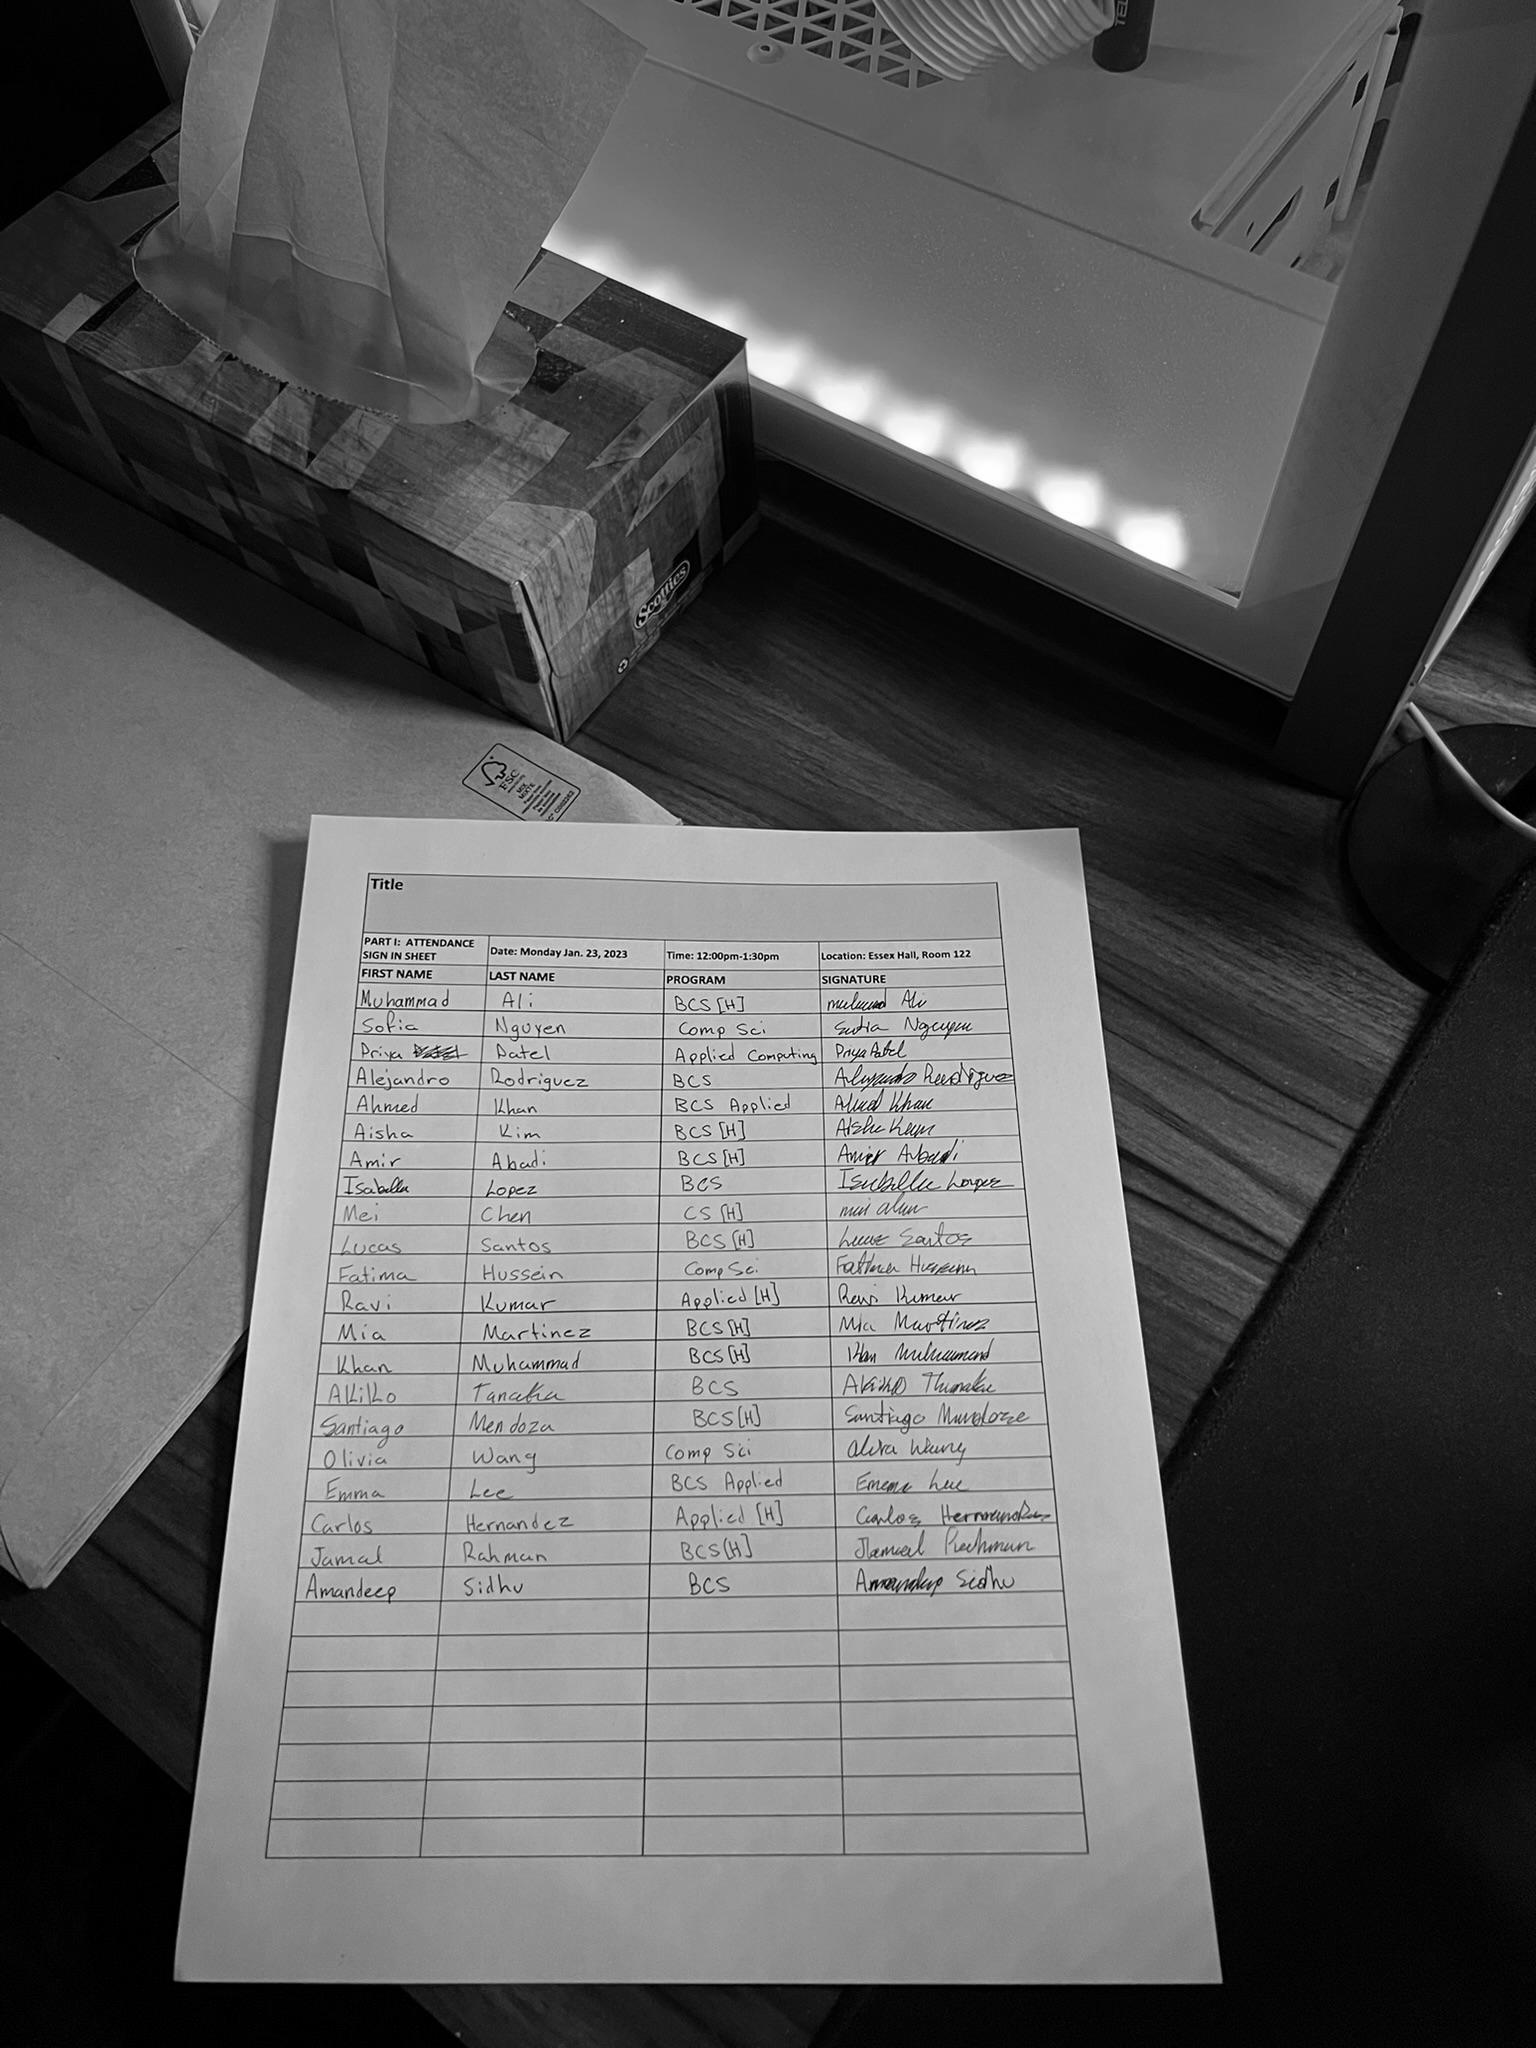 TEL
Scotties
FSC
MIX
MIXTE
Title
PART I: ATTENDANCE SIGN IN SHEET Date: Monday Jan. 23, 2023 Time: 12:00pm-1:30pm Location: Essex Hall, Room 122
FIRST NAME LAST NAME PROGRAM SIGNATURE
Muhammad Ali BCS [H] Ali
Sofia Nguyen Comp Sci Sofia Nguyen
Priya Patel Applied Computing Priya Patel
Alejandro Rodriguez BCS Alejandro Rodriguez
Ahmed Khan BCS Applied Ahmed Khan
Aisha Kim BCS [H] Aisha Kim
Amir Abadi BCS [H] Amir Abadi
Isabella Lopez BCS Isabella Lopez
Mei Chen CS [H] mei chen
Lucas Santos BCS [H] Lucas Santos
Fatima Hussein Comp Sci Fatima Hussein
Ravi Kumar Applied [H] Ravi Kumar
Mia Martinez BCS [H] Mia Martinez
Khan Muhammad BCS [H] Khan Muhammad
Akiko Tanaka BCS Akiko Tanaka
Santiago Mendoza BCS [H] Santiago Mendoza
Olivia Wang Comp Sci Wang
Emma Lee BCS Applied Emma Lee
Carlos Hernandez Applied [H] Carlos Hernandez
Jamal Rahman BCS [H] Jamal Rahman
Amandeep Sidhu BCS Amandeep Sidhu